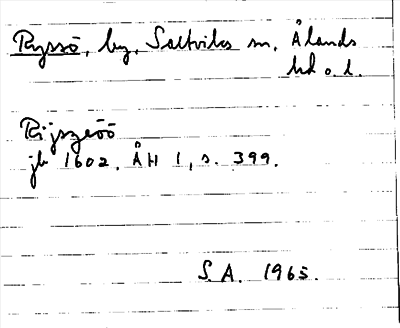 Ryssö, by, Saltviks sn, Ålands
hd o. l.
Rijszeöö
jb 1602. ÅH 1, s. 399.
S.A. 1965.